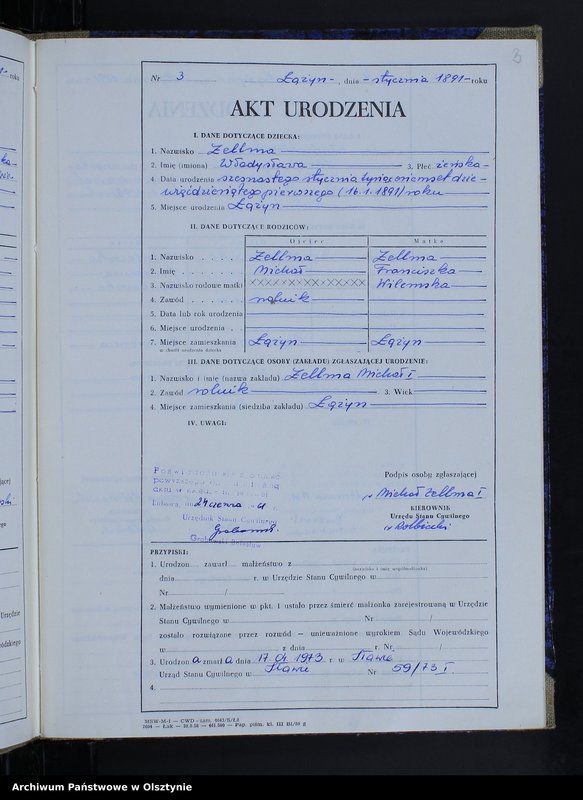 3
Nr 3 Łążyn, dnia - stycznia 1891 - roku
AKT URODZENIA
I. DANE DOTYCZĄCE DZIECKA:
1. Nazwisko Zellma
2. Imię (imiona) Władysława 3. Płeć żeńska
4. Data urodzenia szesnastego stycznia tysiąc osiemset dzie-
więćdziesiątego pierwszego (16.1.1891) roku
5. Miejsce urodzenia Łążyn
II. DANE DOTYCZĄCE RODZICÓW:
Ojciec Matka
1. Nazwisko Zellma Zellma
2. Imię Michał Franciszka
3. Nazwisko rodowe matki XXXXXXXXXXXXXXX Wilemska
4. Zawód rolnik
5. Data lub rok urodzenia
6. Miejsce urodzenia
7. Miejsce zamieszkania Łążyn Łążyn
w chwili urodzenia dziecka
III. DANE DOTYCZĄCE OSOBY (ZAKŁADU) ZGŁASZAJĄCEJ URODZENIE:
1. Nazwisko i imię (nazwa zakładu) Zellma Michał I
2. Zawód rolnik 3. Wiek
4. Miejsce zamieszkania (siedziba zakładu) Łążyn
IV. UWAGI:
Podpis osoby zgłaszającej
Michał Zellma I
KIEROWNIK
Urzędu Stanu Cywilnego
Urzędnik Stanu Cywilnego
PRZYPISKI:
1. Urodzon zawarł małżeństwo z
(nazwisko i imię współmałżonka)
dnia r. w Urzędzie Stanu Cywilnego w
Nr /
2. Małżeństwo wymienione w pkt. 1 ustało przez śmierć małżonka zarejestrowaną w Urzędzie
Stanu Cywilnego w Nr /
zostało rozwiązane przez rozwód — unieważnione wyrokiem Sądu Wojewódzkiego
w z dnia r. Nr. /
3. Urodzon a zmarł a dnia 17.04.1973 r. w Iławie
Urząd Stanu Cywilnego w Iławie Nr 59/73 I
4.
Archiwum Państwowe w Olsztynie